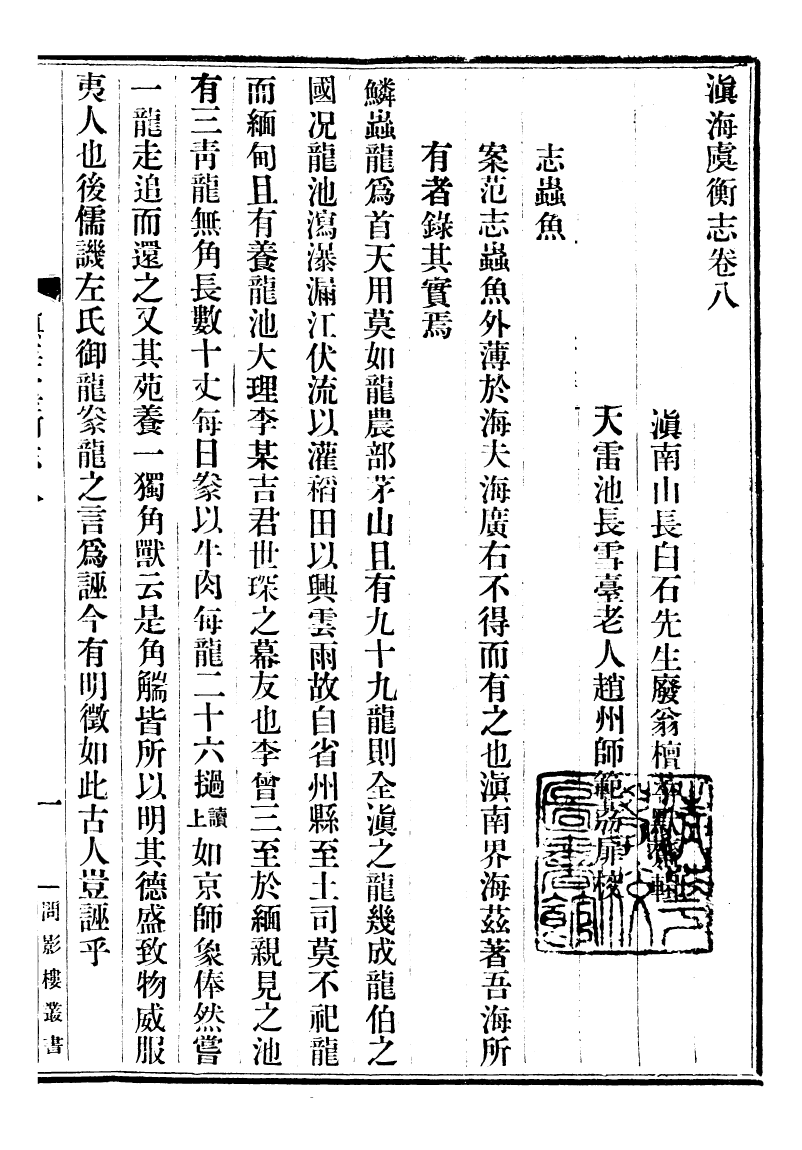 滇海虞衡志卷八
滇南山長白石先生廢翁檀萃默齋輯
天雷池長雪臺老人趙州師範荔扉校
志蟲魚
案范志蟲魚外薄於海夫海廣右不得而有之也滇南界海茲著吾海所
有者錄其實焉
鱗蟲龍爲首天用莫如龍農部茅山且有九十九龍則全滇之龍幾成龍伯之
國况龍池瀉瀑漏江伏流以灌稻田以興雲雨故自省州縣至土司莫不祀龍
而緬甸且有養龍池大理李某吉君世琛之幕友也李曾三至於緬親見之池
有三靑龍無角長數十丈每日豢以牛肉每龍二十六撾讀上如京師象俸然嘗
一龍走追而還之又其苑養一獨角獸云是角觿皆所以明其德盛致物威服
夷人也後儒譏左氏御龍豢龍之言爲誣今有明徵如此古人豈誣乎
一
問影樓叢書